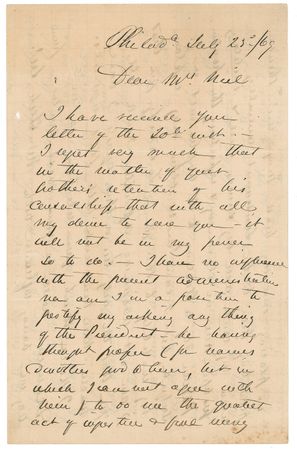 Philad.a July 23d/69
Dear Mrs Neil
I have received your
letter of the 20th inst. —
I regret very much that
in the matter of your
brothers retention of his
Consulship that with all
my desire to serve you — it
will not be in my power
so to do. — I have no influence
with the present administration
nor am I in a position to
justify my asking any thing
of the President — he having
thought proper (for reasons
doubtless good to him, but in
which I can not agree with
him) to do me the greatest
act of injustice &